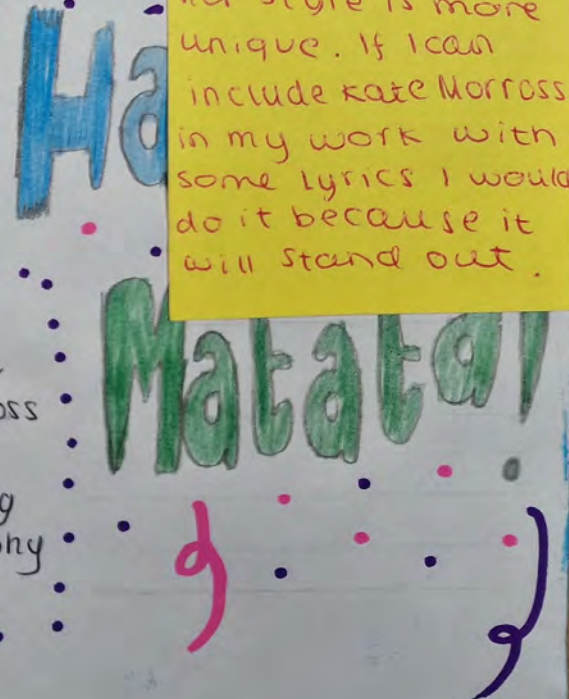 style is more
unique. If I can
include Kate Morross
in my work with
some lyrics I would
do it because it
will stand out.
Ha
Matata!
oss
g
hy